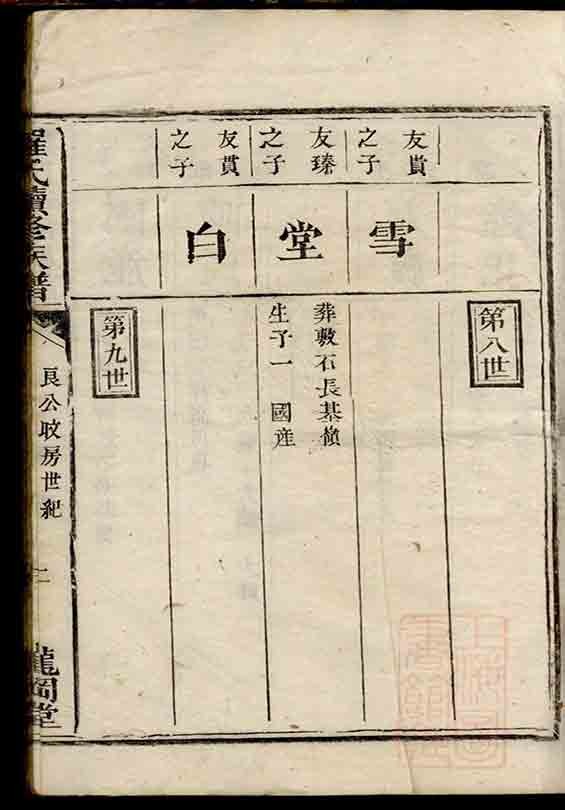 第八世
友貴
之子
雪
友瑧
之子
堂
葬數石長基嶺
生子一 國產
友貫
之子
白
第九世
羅氏續修族譜
良公㕛房世紀
二
龍岡堂